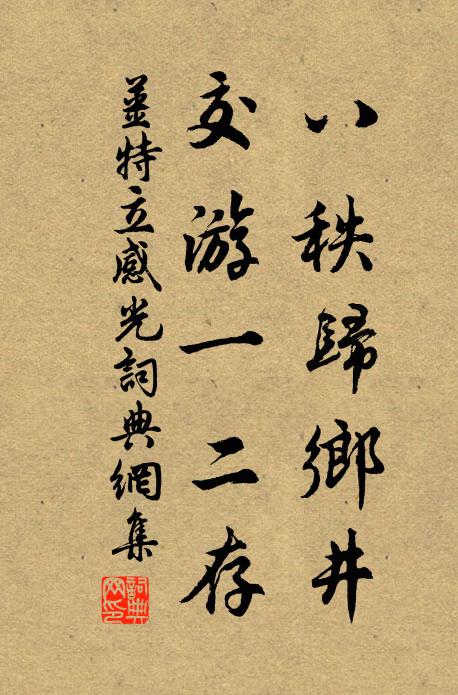 八秩歸鄉井
交游一二存
姜特立感光詞典網集
詞典网印